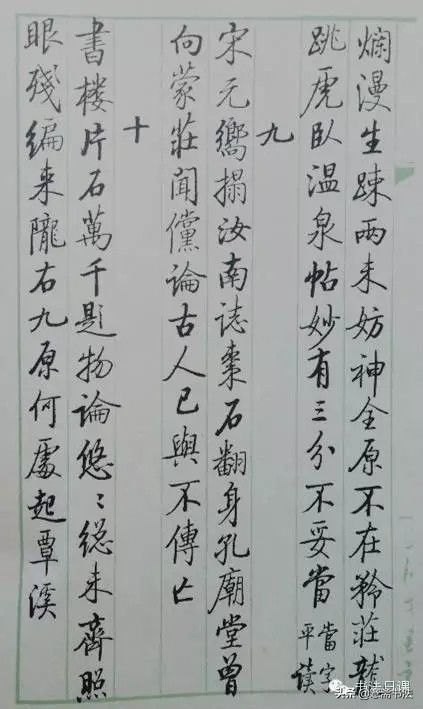 爛漫生踈兩未妨神全原不在矜莊龍
跳虎臥溫泉帖妙有三分不妥當
當字
平讀
九
宋元嚮搨汝南誌棗石翻身孔廟堂曾
向蒙莊聞讜論古人已與不傳亡
十
書樓片石萬千題物論悠〻總未齊照
眼殘編來隴右九原何處起覃溪
书法日课